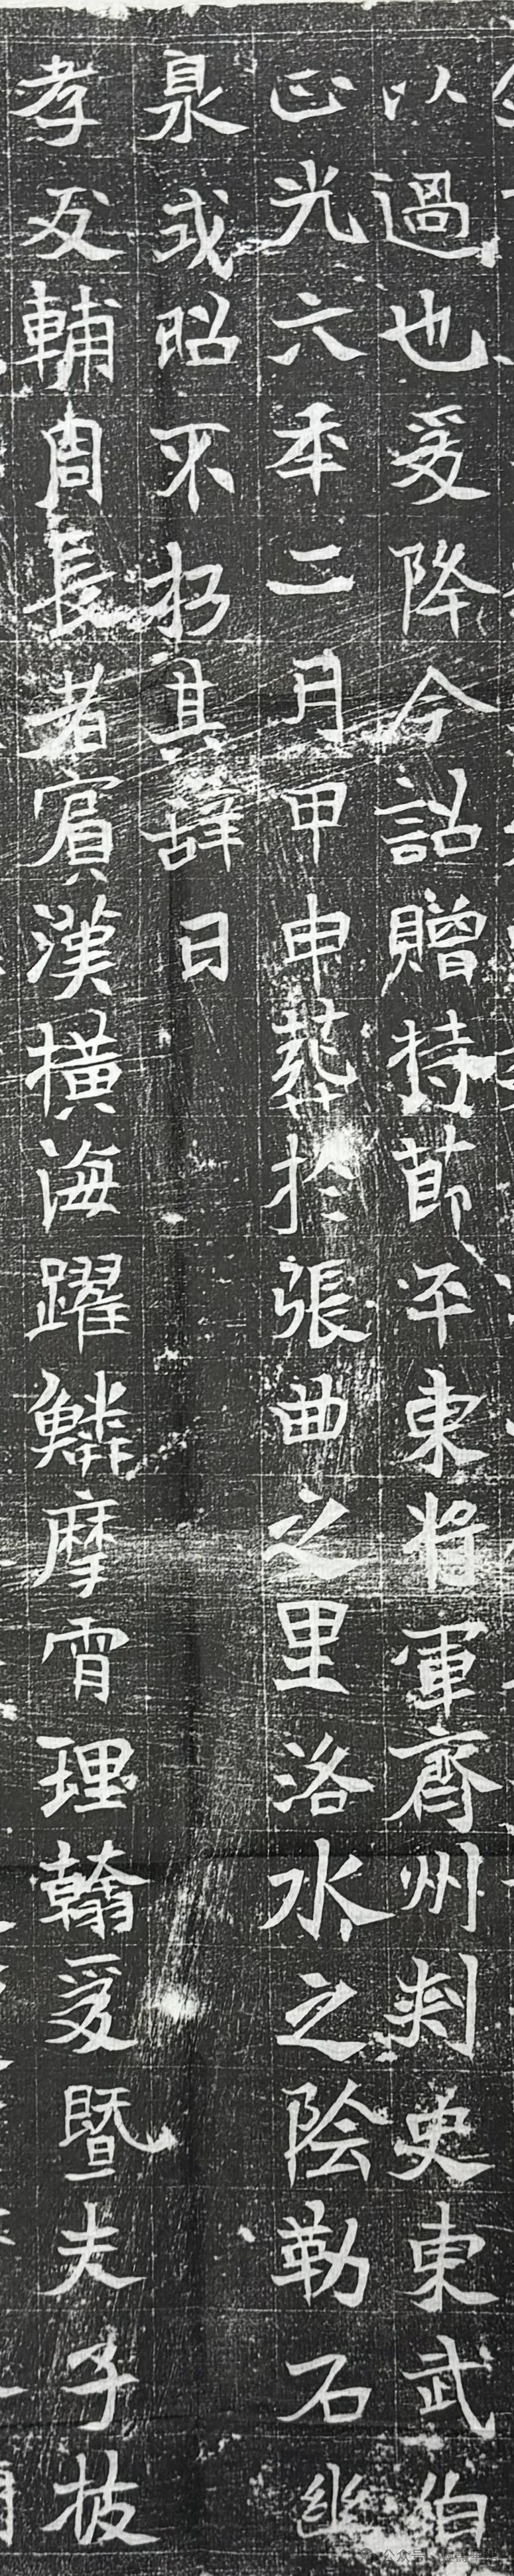 以過也爰降今詔贈持莭平東将軍齊州刾史東武伯
正光六年二月甲申葬於張曲之里洛水之陰勒石幽
泉或昭不朽其辞曰
孝友輔周長者賔漢横海躍鱗摩霄理翰爰暨夫子披